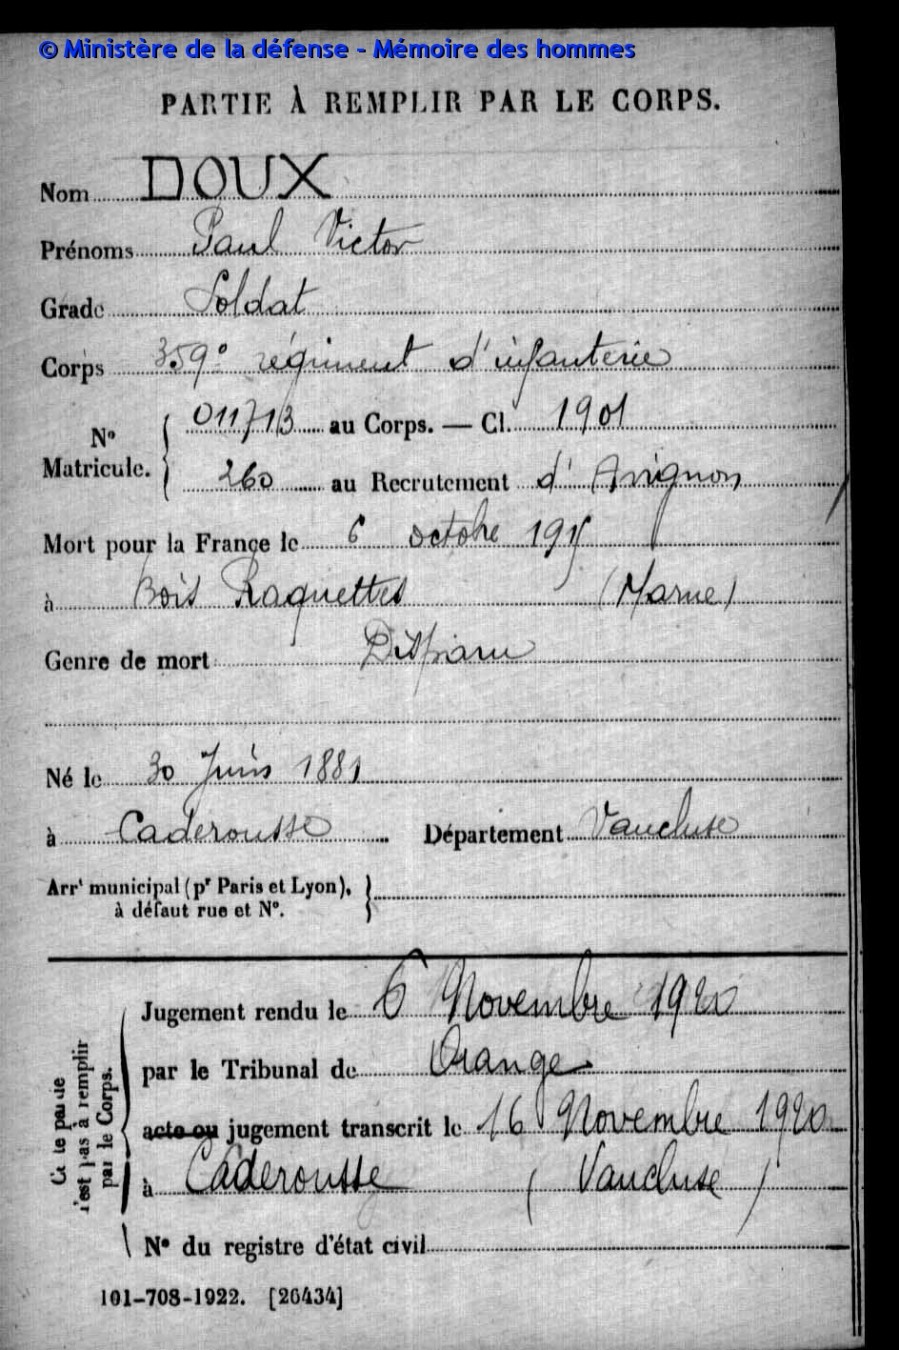 © Ministère de la défense - Mémoire des hommes
PARTIE À REMPLIR PAR LE CORPS.
Nom DOUX
Prénoms Paul Victor
Grade Soldat
Corps 359e régiment d'infanterie
N° Matricule. { 011713 au Corps. — Cl. 1901
260 au Recrutement d' Avignon
Mort pour la France le 6 octobre 1915
à Bois Raquettes (Marne)
Genre de mort Disparu
Né le 30 Juin 1881
à Caderousse Département Vaucluse
Arrt municipal (pr Paris et Lyon), }
à défaut rue et N°.
Ce te partie
n'est pas à remplir
par le Corps.
Jugement rendu le 6 Novembre 1920
par le Tribunal de Orange
acte ou jugement transcrit le 16 Novembre 1920
à Caderousse (Vaucluse)
N° du registre d'état civil
101-708-1922. [26434]